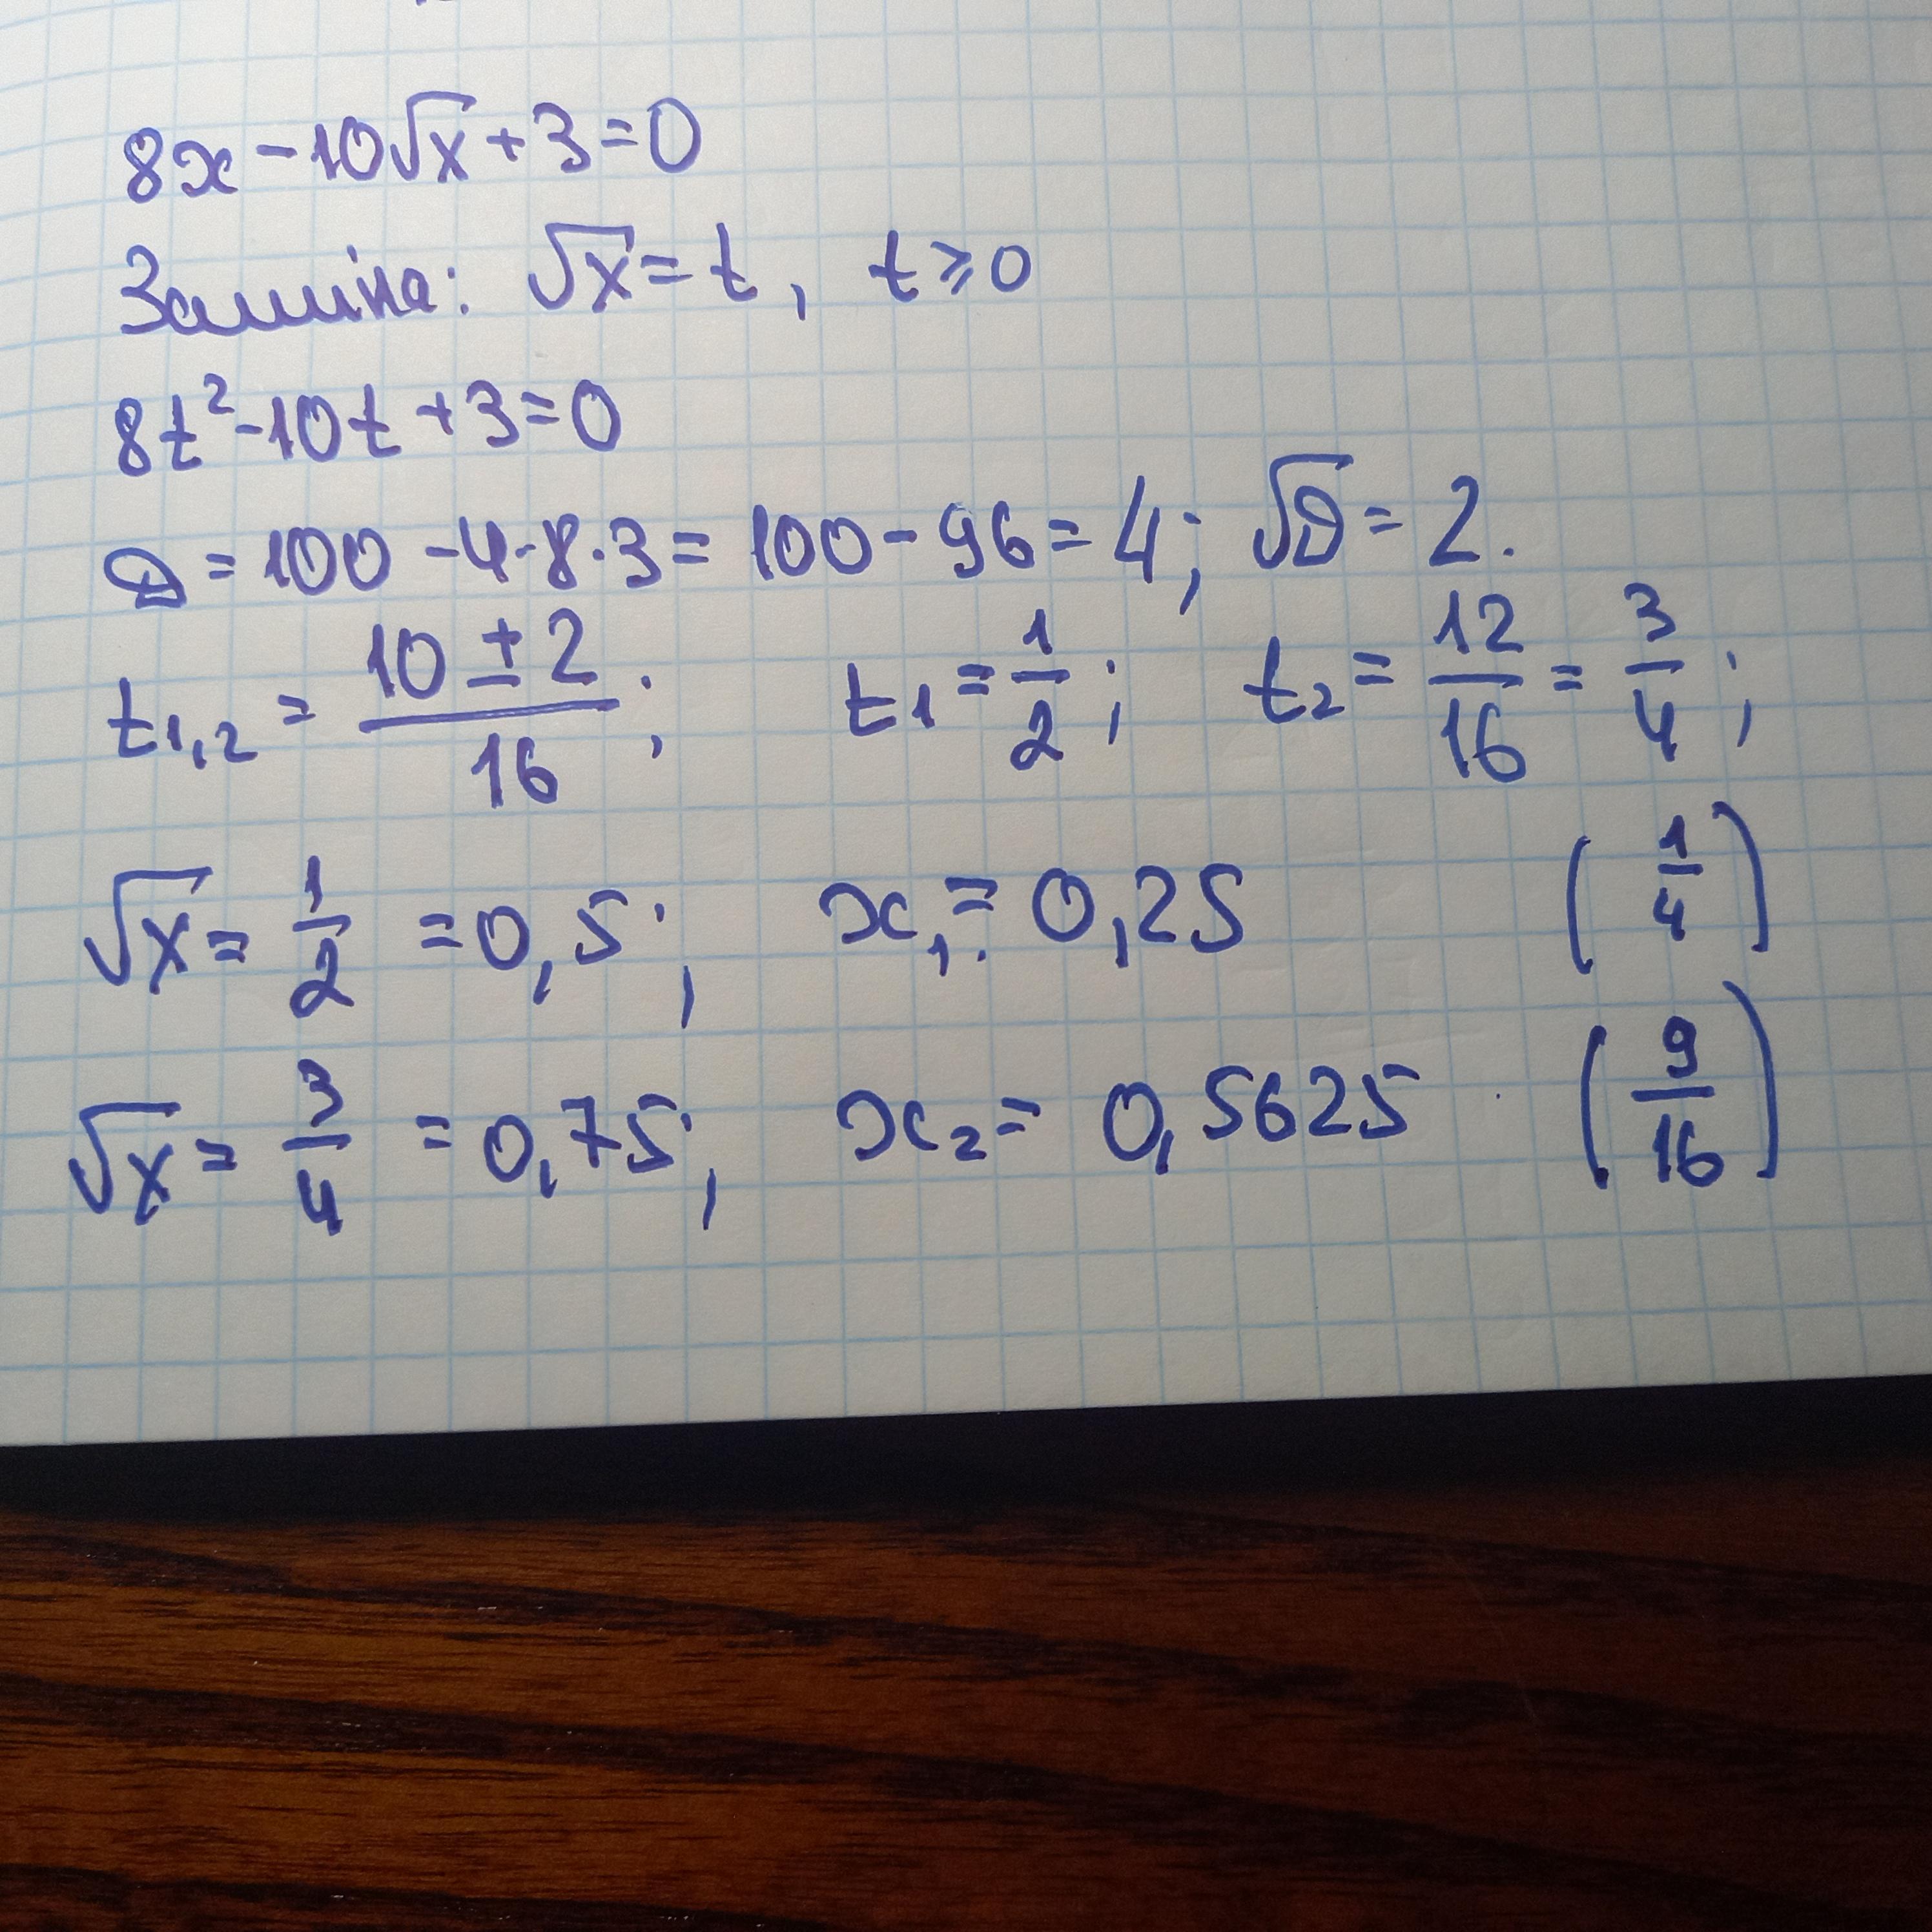 8x - 10√x + 3 = 0
Заміна: √x = t, t ≥ 0
8t² - 10t + 3 = 0
D = 100 - 4·8·3 = 100 - 96 = 4; √D = 2.
t₁,₂ = (10 ± 2)/16; t₁ = 1/2; t₂ = 12/16 = 3/4;
√x = 1/2 = 0,5; x₁ = 0,25 (1/4)
√x = 3/4 = 0,75; x₂ = 0,5625 (9/16)